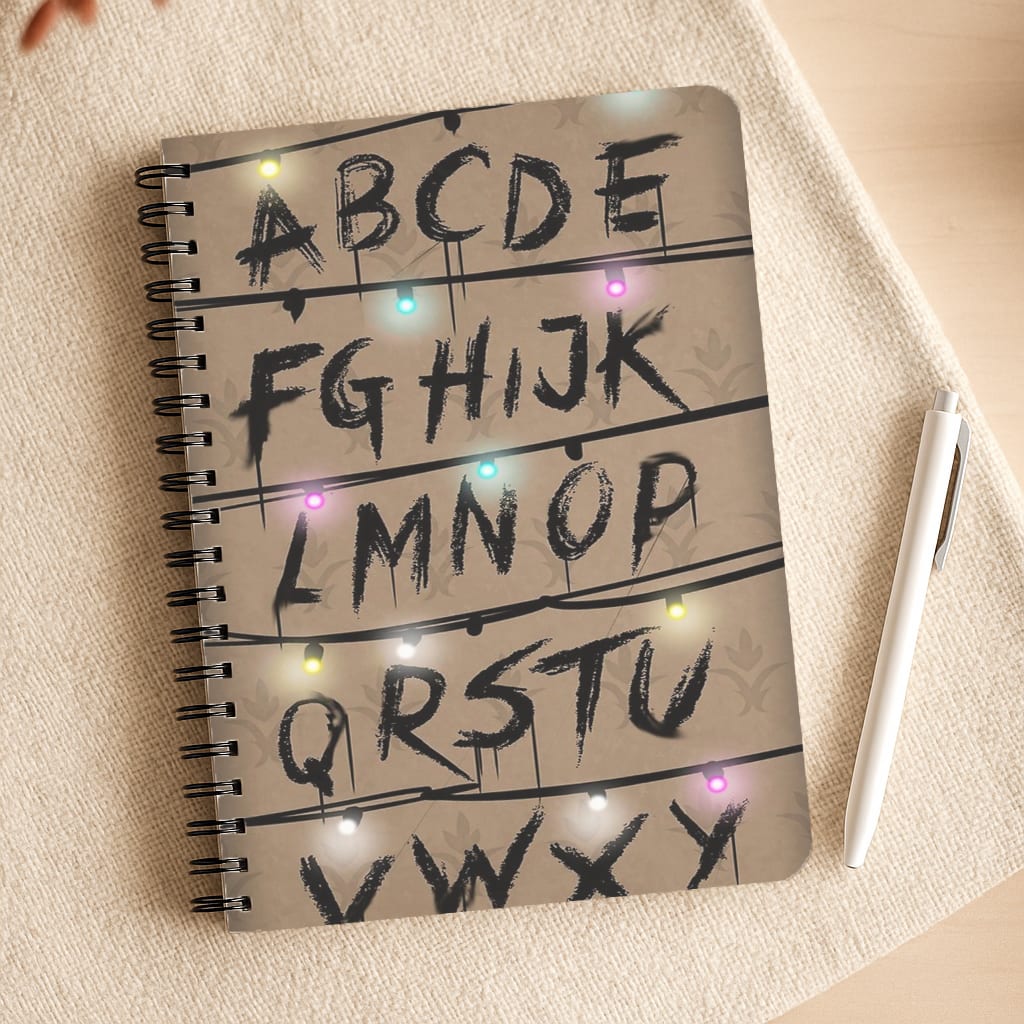 ABCDE
FGHIJK
LMNOP
QRSTU
VWXY